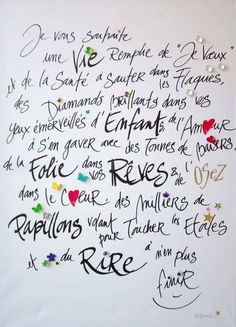 Je vous souhaite
une Vie Remplie de "Je Veux"
et de la Santé à Sauter dans les Flaques,
des Diamants brillants dans vos
yeux émerveillés d'Enfants, de l'Amour
à s'en gaver avec des Tonnes de baisers,
de la Folie dans vos Rêves & de l'OSEZ
dans le Cœur des Milliers de
Papillons volant pour Toucher les Etoiles
et du Rire à n'en plus
finir